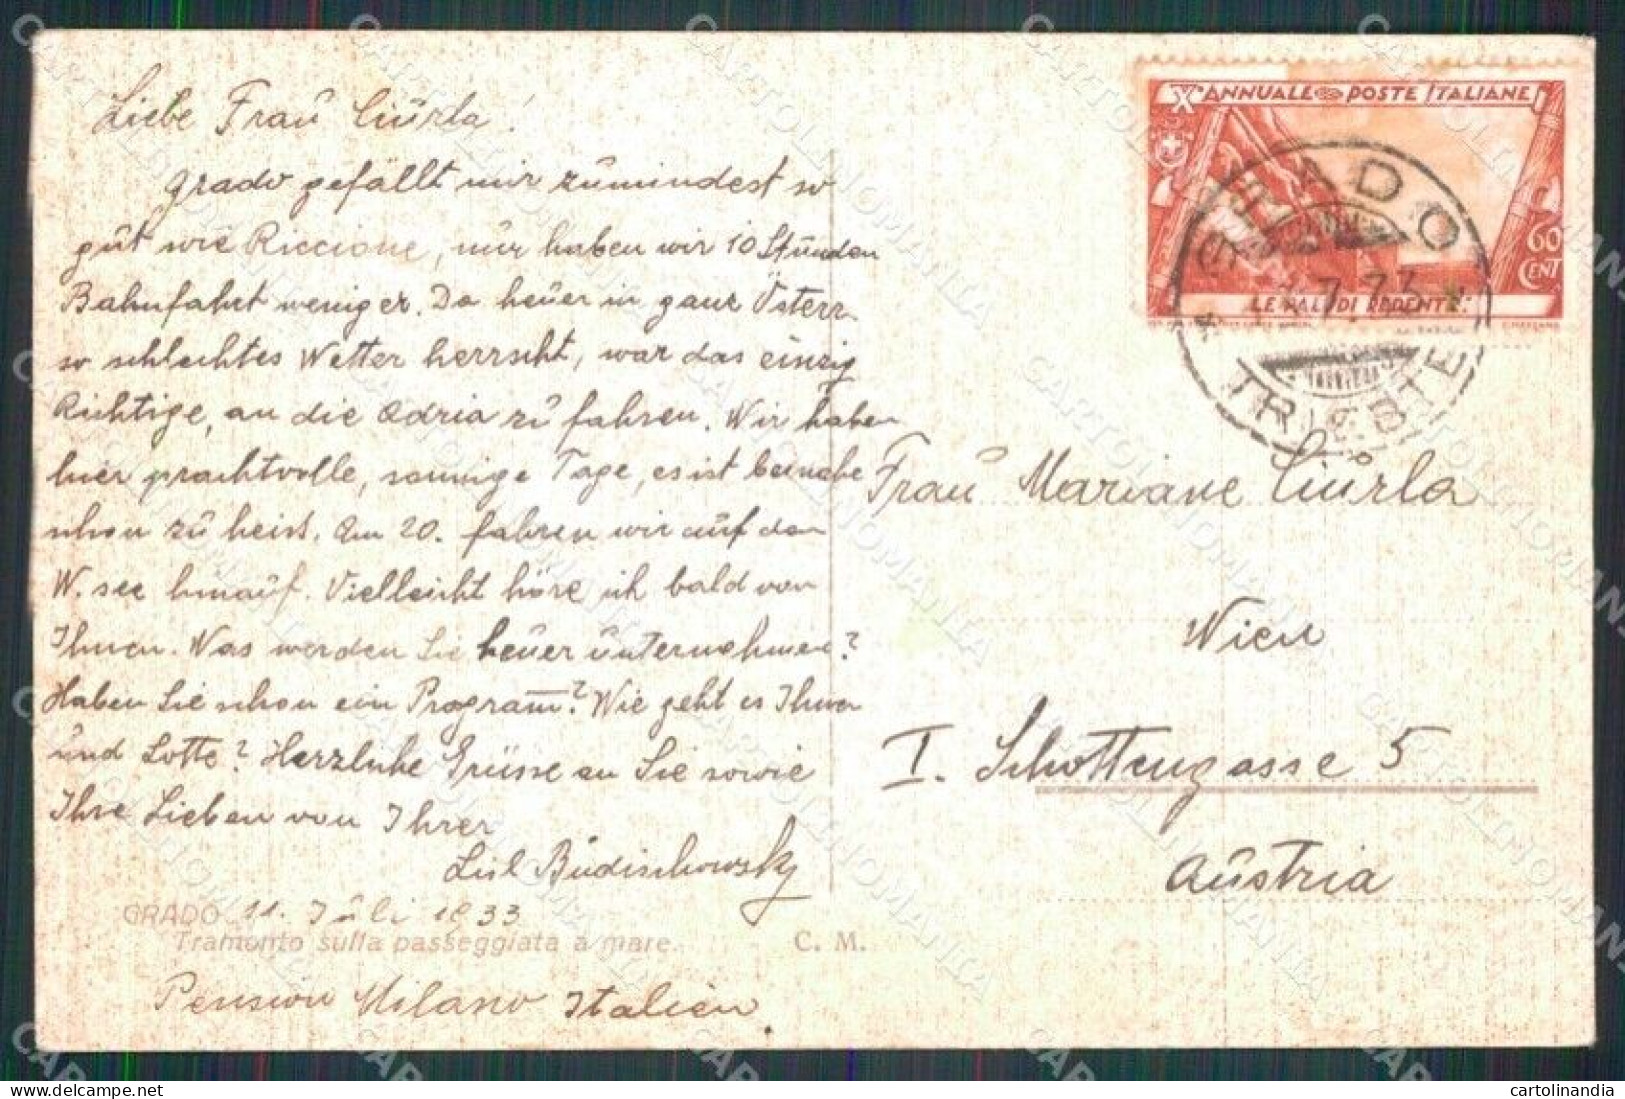 Liebe Frau Ciurla!
Grado gefällt mir zumindest so
gut wie Riccione, nur haben wir 10 Stunden
Bahnfahrt weniger. Da heuer in ganz Österr.
so schlechtes Wetter herrscht, war das einzig
Richtige, an die Adria zu fahren. Wir haben
hier prachtvolle, sonnige Tage, es ist beinahe
schon zu heiss. Am 20. fahren wir auf den
W. see hinauf. Vielleicht höre ich bald von
Ihnen. Was werden Sie heuer unternehmen?
Haben Sie schon ein Program̅? Wie geht es Ihnen
und Lotte? Herzliche Grüsse an Sie sowie
Ihre Lieben von Ihrer
Lisl Budischowsky
GRADO 11. Juli 1933
Tramonto sulla passeggiata a mare.
C. M.
Pension Milano Italien.
X ANNUALE POSTE ITALIANE
60
CENT
LE PALI DI ARDENTE
GRADO
TRIESTE
Frau Mariane Ciurla
Wien
I. Schottengasse 5
Austria
CARTOLINANDIA
cartolinandia